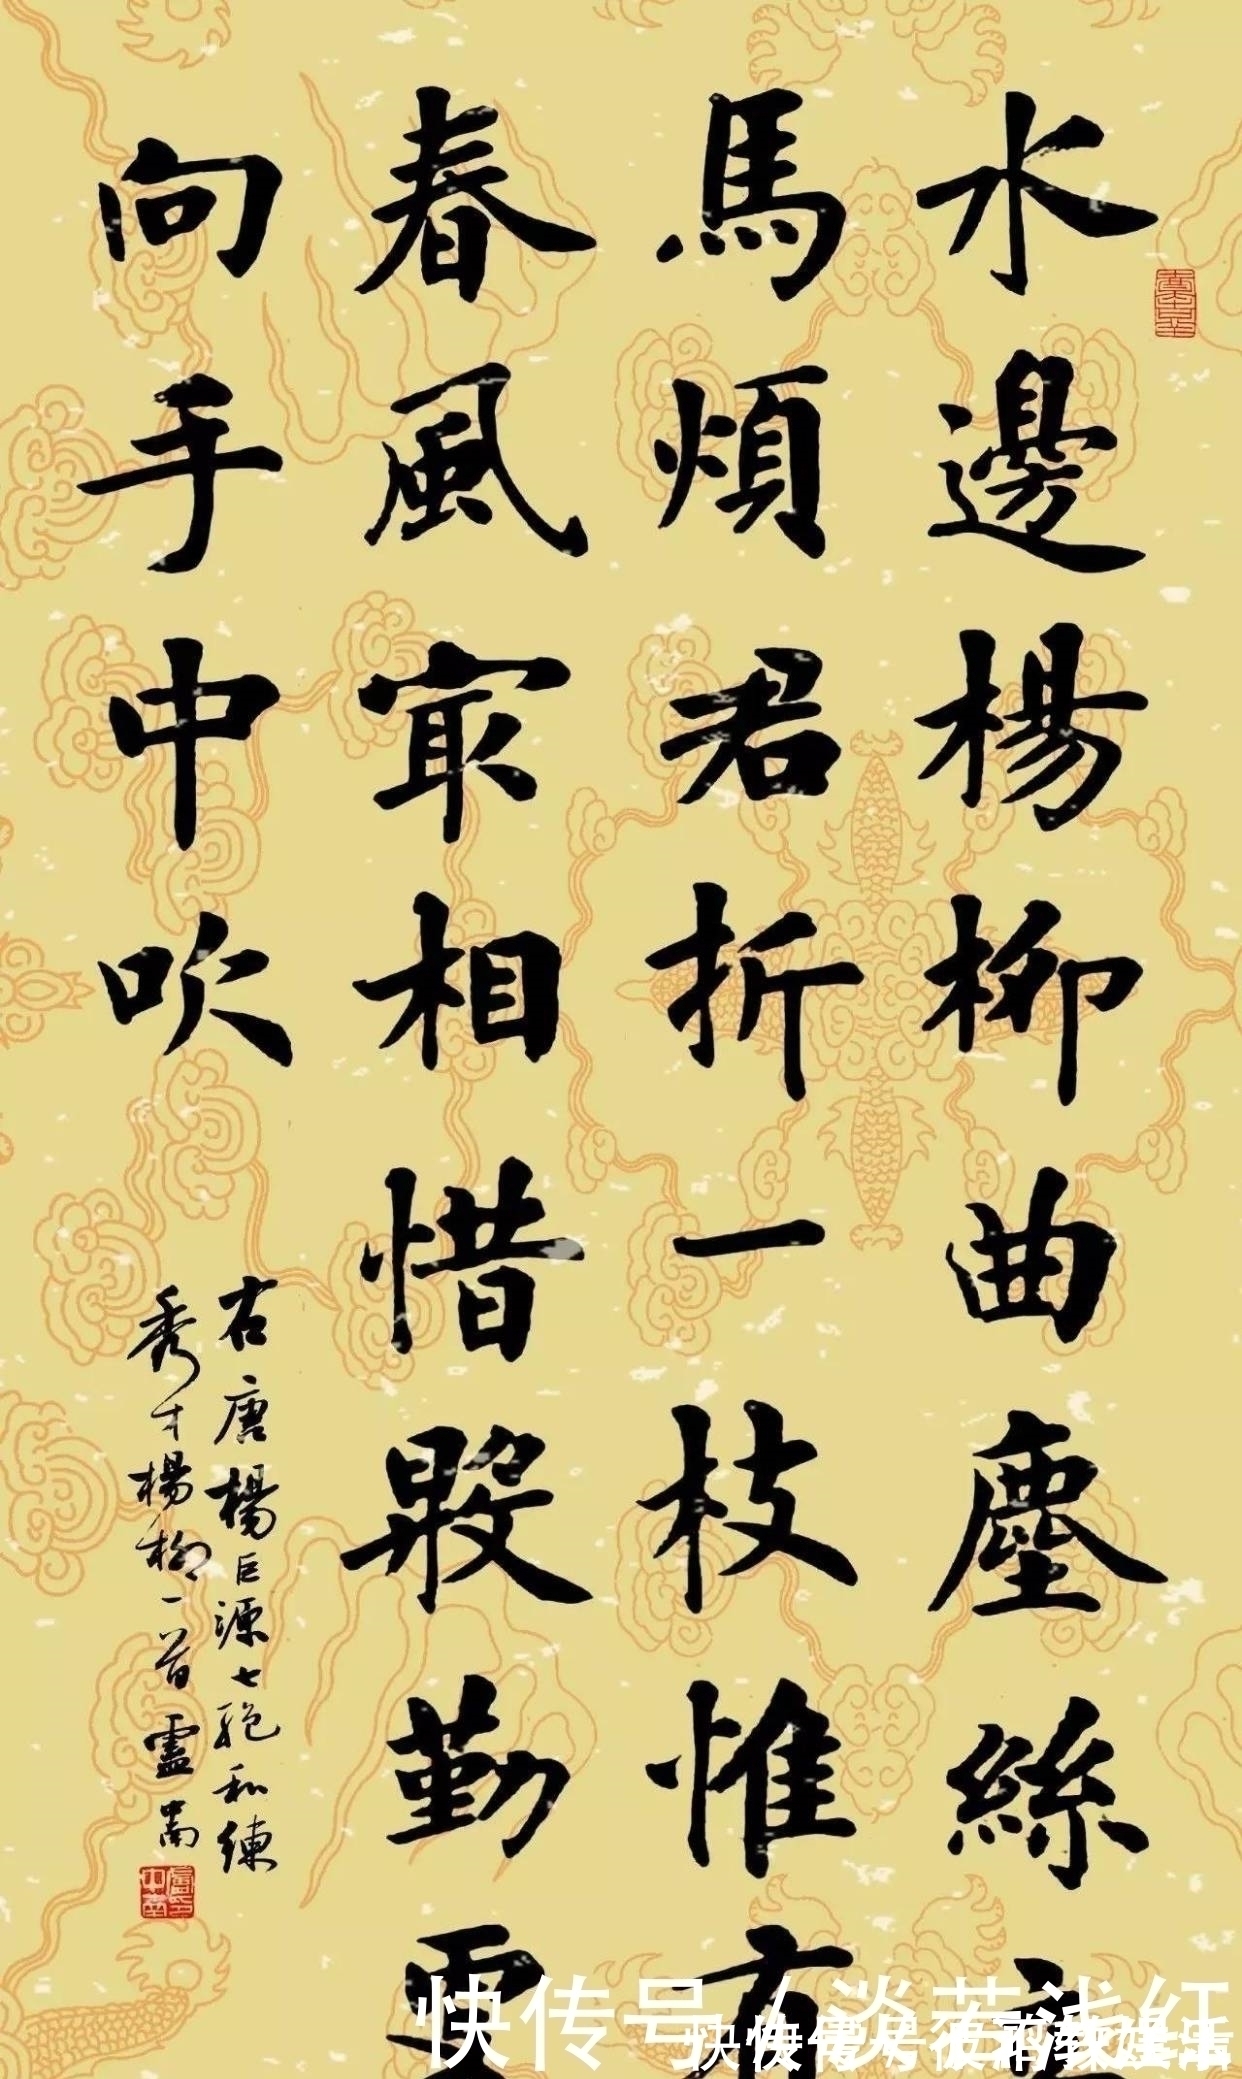 水邊楊柳曲塵絲立
馬煩君折一枝惟有
春風冣相惜殷勤更
向手中吹
右唐楊巨源七絕和練
秀才楊柳一首盧中南
快传号